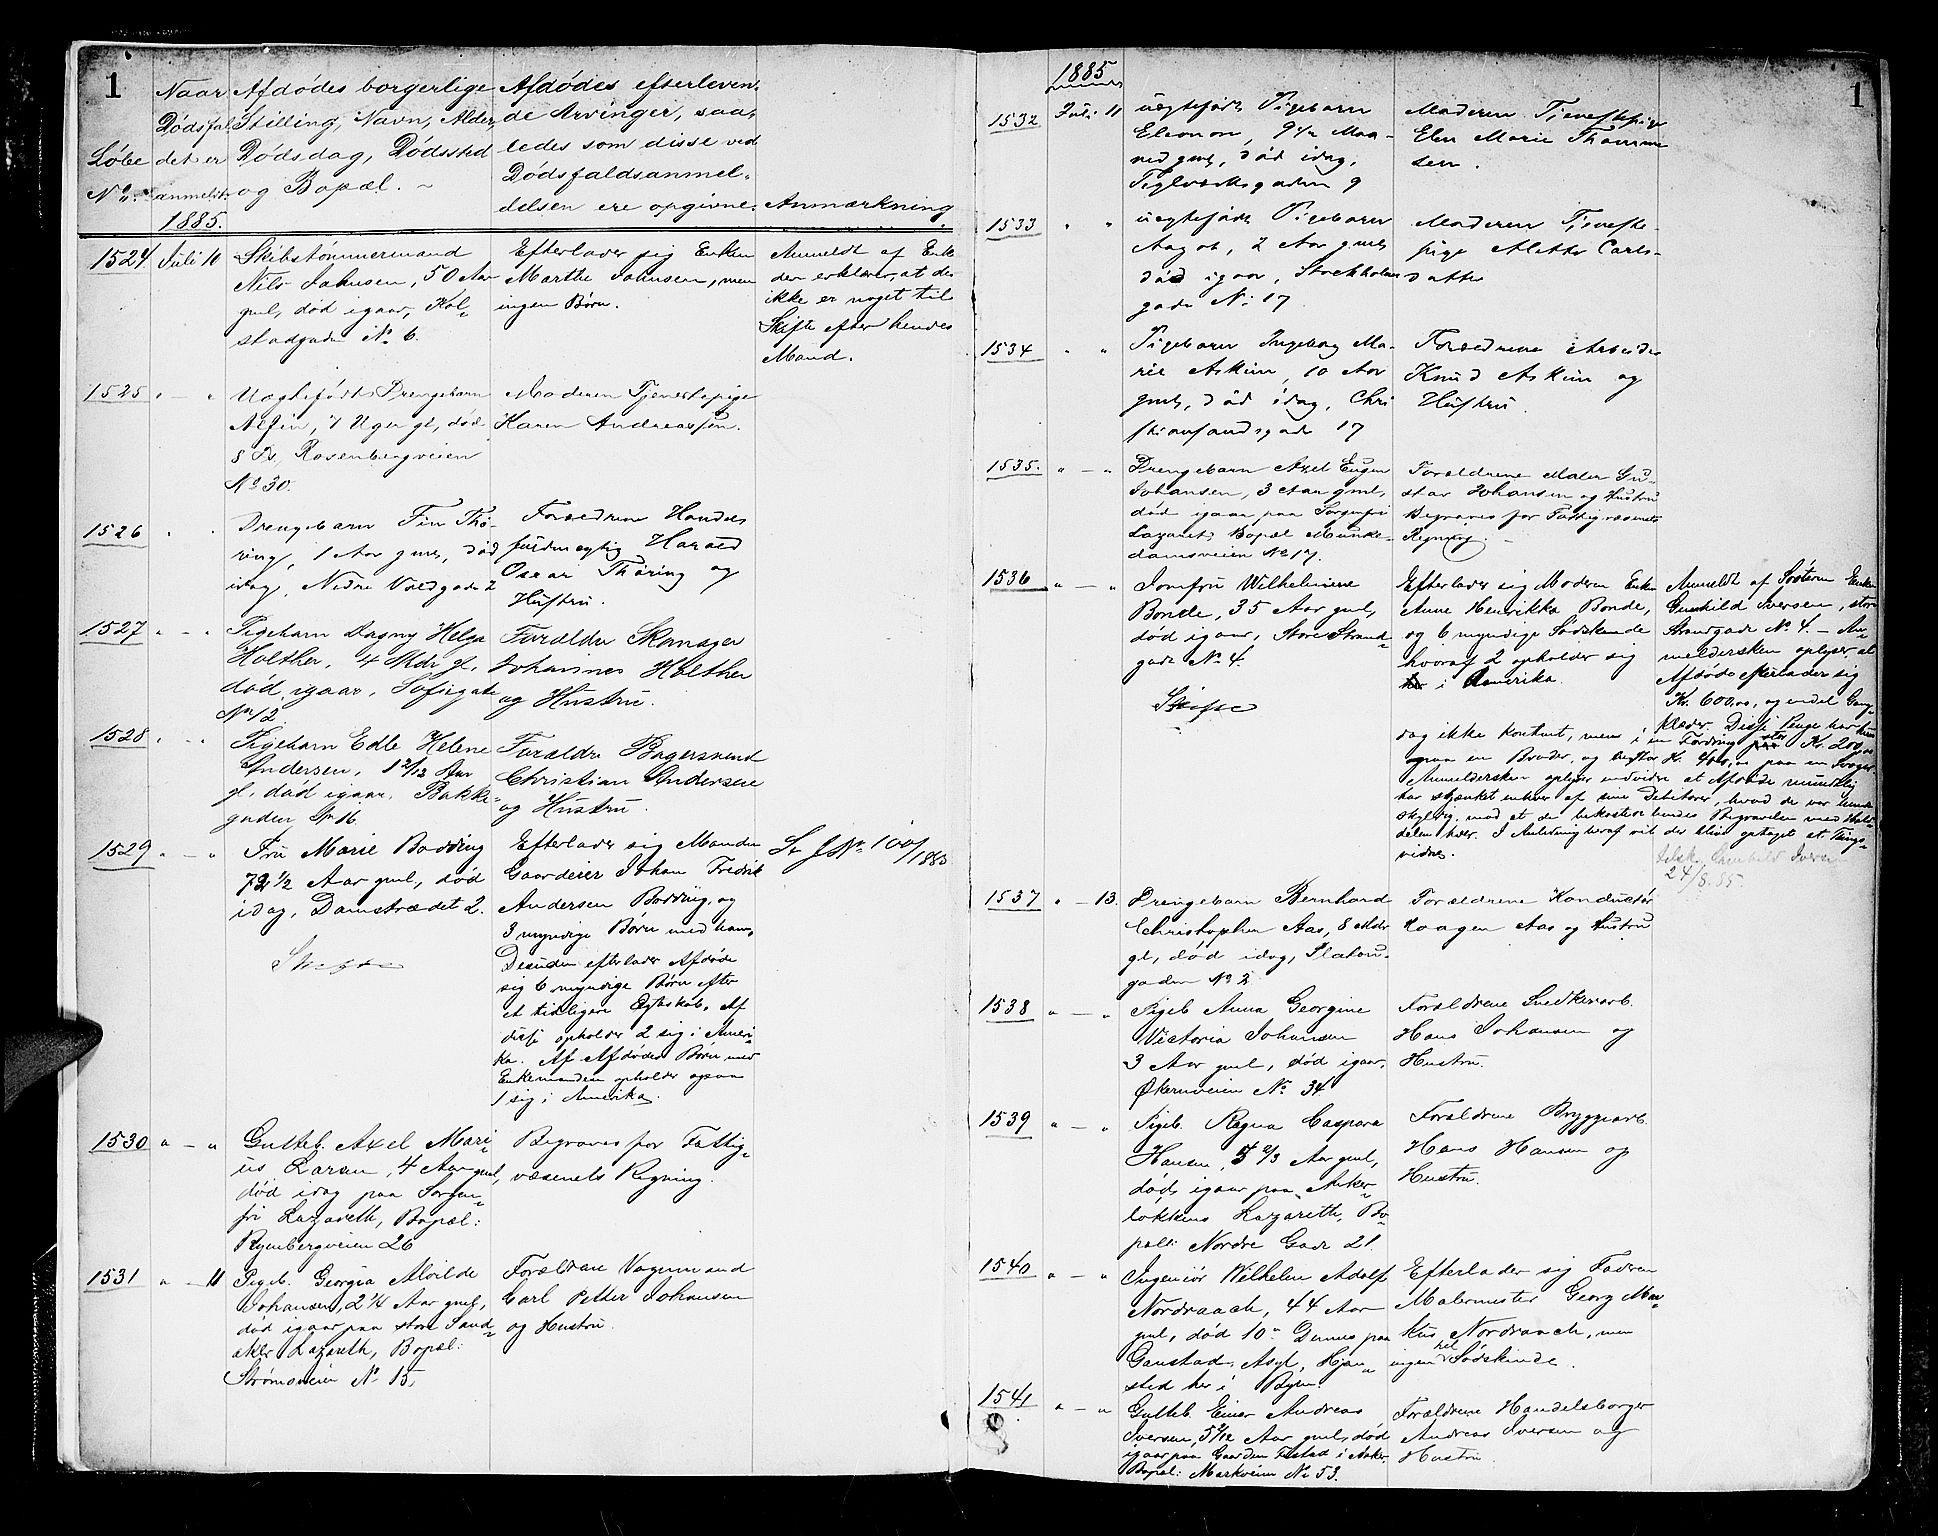 1
Naar
Dødsfal
det er
anmeldt.
Løbe
No.
Afdødes borgerlige
Stilling, Navn, Alder,
Dødsdag, Dødssted
og Bopæl.
Afdødes efterleven
de Arvinger, saa
ledes som disse ved
Dødsfaldsanmel
delsen ere opgivne.
Anmærkning.
1885.
1524 Juli 10
Skibstømmermand
Nils Johnsen, 50 Aar
gml, død igaar, Kol
stadgade No. 6.
Efterlader sig Enken
Marthe Johnsen, men
ingen Børn.
Anmeldt af Enk
der erklærer, at der
ikke er noget til
Skifte efter hendes
Mand.
1525 " — "
Uægtefødt Drengebarn
Alfin, 7 Uger gl, død
8 ds, Rosenbergveien
No 30.
Moderen Tjenestepige
Karen Andreassen.
1526 " "
Drengebarn Fin Thø-
ring, 1 Aar gml, død
idag, Nedre Voldgade 2
Forældrene Handels
fuldmægtig Harald
Oscar Thøring og
Hustru.
1527 " — "
Pigebarn Dagny Helga
Holther, 4 Mdr gl,
død igaar, Sofiegate
No 12
Forældre Skomager
Johannes Holther
og Hustru.
1528 " — "
Pigebarn Edle Helene
Andersen, 1 2/12 Aar
gl, død igaar, Bakke-
gaden No 16
Forældre Bagersvend
Christian Andersen
og Hustru.
1529 " — "
Fru Marie Bodding
72 1/2 Aar gml, død
idag, Damstrædet 2.
Skifte
Efterlader sig Manden
Gaardeier Johan Fredrik
Andersen Bodding, og
3 myndige Børn med ham,
Desuden efterlader Afdøde
sig 6 myndige Børn efter
et tidligere Ægteskab. Af
disse opholder 2 sig i Ameri-
ka. Af Afdødes Børn med
Enkemanden opholder ogsaa
1 sig i Amerika.
Se J.No. 100/1885
1530 " — "
Gutteb. Axel Mari-
us Larsen, 4 Aar gml,
død idag paa Sorgen-
fri Lazareth, Bopæl:
Rynbergveien 26
Begraves for Fattig-
væsenets Regning.
1531 " — 11
Pigeb. Georgia Alvilde
Johansen, 2 1/4 Aar gml,
død igaar paa store Sand-
aker Lazareth, Bopæl:
Strømsveien No 15,
Forældrene Vognmand
Carl Petter Johansen
og Hustru.
1
1885
1532 Juli 11
uægtefødt Pigebarn
Eleonor, 9 1/2 Maa
ned gml, død idag,
Teglværksgaden 9
Moderen Tjenestepige
Elen Marie Thomme
sen.
1533 " "
uægtefødt Pigebarn
Aagot, 2 Aar gml
død igaar, Stockholms
gade No 17
Moderen Tjeneste-
pige Alette Carls-
datter
1534 " "
Pigebarn Ingeborg Ma-
rie Askim, 10 Aar
gml, død idag, Chri
stiansandsgade 17
Forældrene Arbeider
Knud Askim og
Hustru.
1535. " — "
Drengebarn Axel Eugen
Johansen, 3 Aar gml,
død igaar paa Sorgenfri
Lazaret, Bopæl Munke-
damsveien No 17.
Forældrene Maler Gu-
stav Johansen og Hustru
Begraves for Fattigvæsenets
Regning.
1536 " — "
Jomfru Wilhelmine
Bonde, 35 Aar gml,
død igaar, Store Strand-
gade No 4.
Skifte
Efterlader sig Moderen Enke
Anne Henrikka Bonde,
og 6 myndige Sødskende
hvoraf 2 opholder sig
i Amerika.
Anmeldt af Søsteren Enken
Gunhild Iversen, store
Strandgade No 4. — An-
meldersken oplyser at
Afdøde efterlader sig
Kr. 600,00, og endel Gang-
klæder. Disse Penge har hun
dog ikke kontant, men i en Fordring stor Kr. 200,00
paa en Broder, og Kr. 400,00 paa en Svoger.
Anmeldersken oplyser endvidre at Afdøde mundtlig
har skjænket enhver af sine Debitorer, hvad de var hende
skyldig, mod at de bekostede hendes Begravelse med
delen hver. I Anledning heraf vil der blive optaget et Tings-
vidne.
Gunhild Iversen
24/8.85.
1537 " — 13.
Drengebarn Bernhard
Christopher Aas, 8 Mdr
gl, død idag, Platou-
gaden No 2
Forældrene Konductør
Haagen Aas og Hustru
1538 " — "
Pigeb Anna Georgine
Victoria Johansen
3 Aar gml, død igaar,
Økernveien No 34
Forældrene Snedkerarb.
Hans Johansen og
Hustru.
1539 " — "
Pigeb. Ragna Caspara
Hansen, 5 2/3 Aar gml,
død igaar paa Anker-
løkkens Lazareth, Bo-
pæl: Nordre Gade 21.
Forældrene Bryggearb.
Hans Hansen og
Hustru.
1540 " — "
Ingeniør Wilhelm Adolf
Nordraach, 44 Aar
gml, død 10 Dennes paa
Gaustad Asyl, Hjem-
sted her i Byen.
Efterlader sig Faderen
Malermester Georg Mar-
kus Nordraach, men
ingen hel Sødskende.
1541 " — "
Gutteb. Einar Andreas
Iversen, 5 7/12 Aar gml, død
igaar paa Gaarden i Aker.
Bopæl: Markveien No 53.
Forældrene Handelsborger
Andreas Iversen og
Hustru